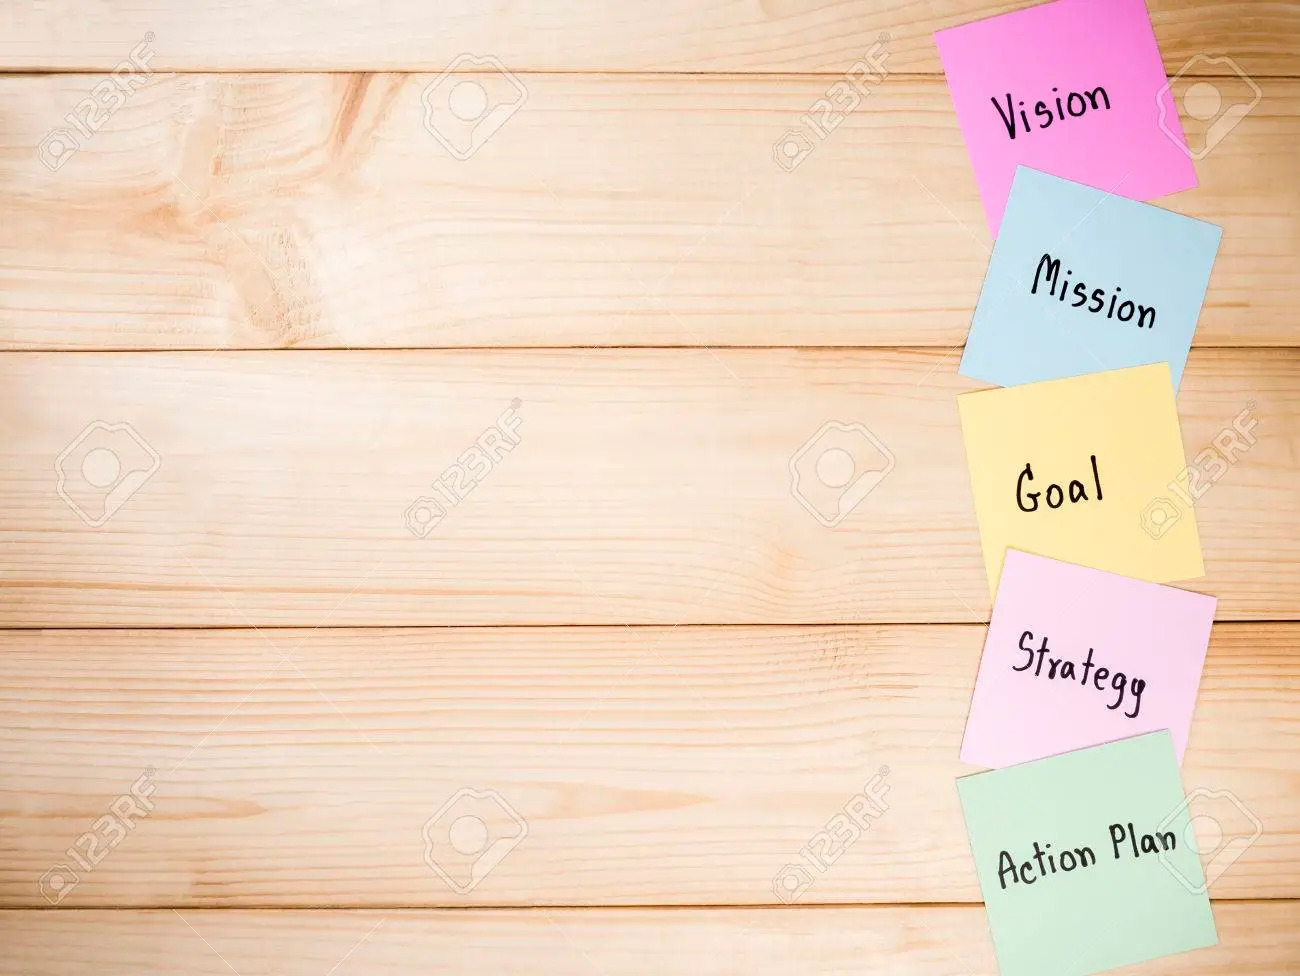 Vision
Mission
Goal
Strategy
Action Plan
123RF
123RF
123RF
123RF
123RF
123RF